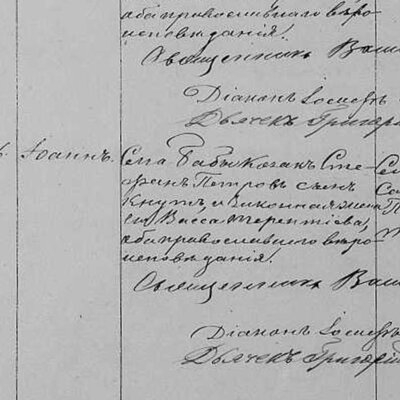 оба православнаго вѣро-
исповѣданія.
Священникъ
Діаконъ Іосифъ
Дьячекъ Григорій
Іоаннъ. Села Бабы козакъ Сте-
фанъ Петровъ сынъ
Кнутъ и законная жена
его Васса Терентіева,
оба православнаго вѣро-
исповѣданія.
Священникъ
Діаконъ Іосифъ
Дьячекъ Григорій